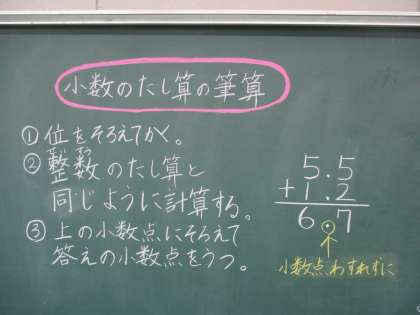 小数のたし算の筆算
①位をそろえてかく。
せいすう
②整数のたし算と
同じように計算する。
③上の小数点にそろえて
答えの小数点をうつ。
5.5
+1.2
6.7
小数点わすれずに